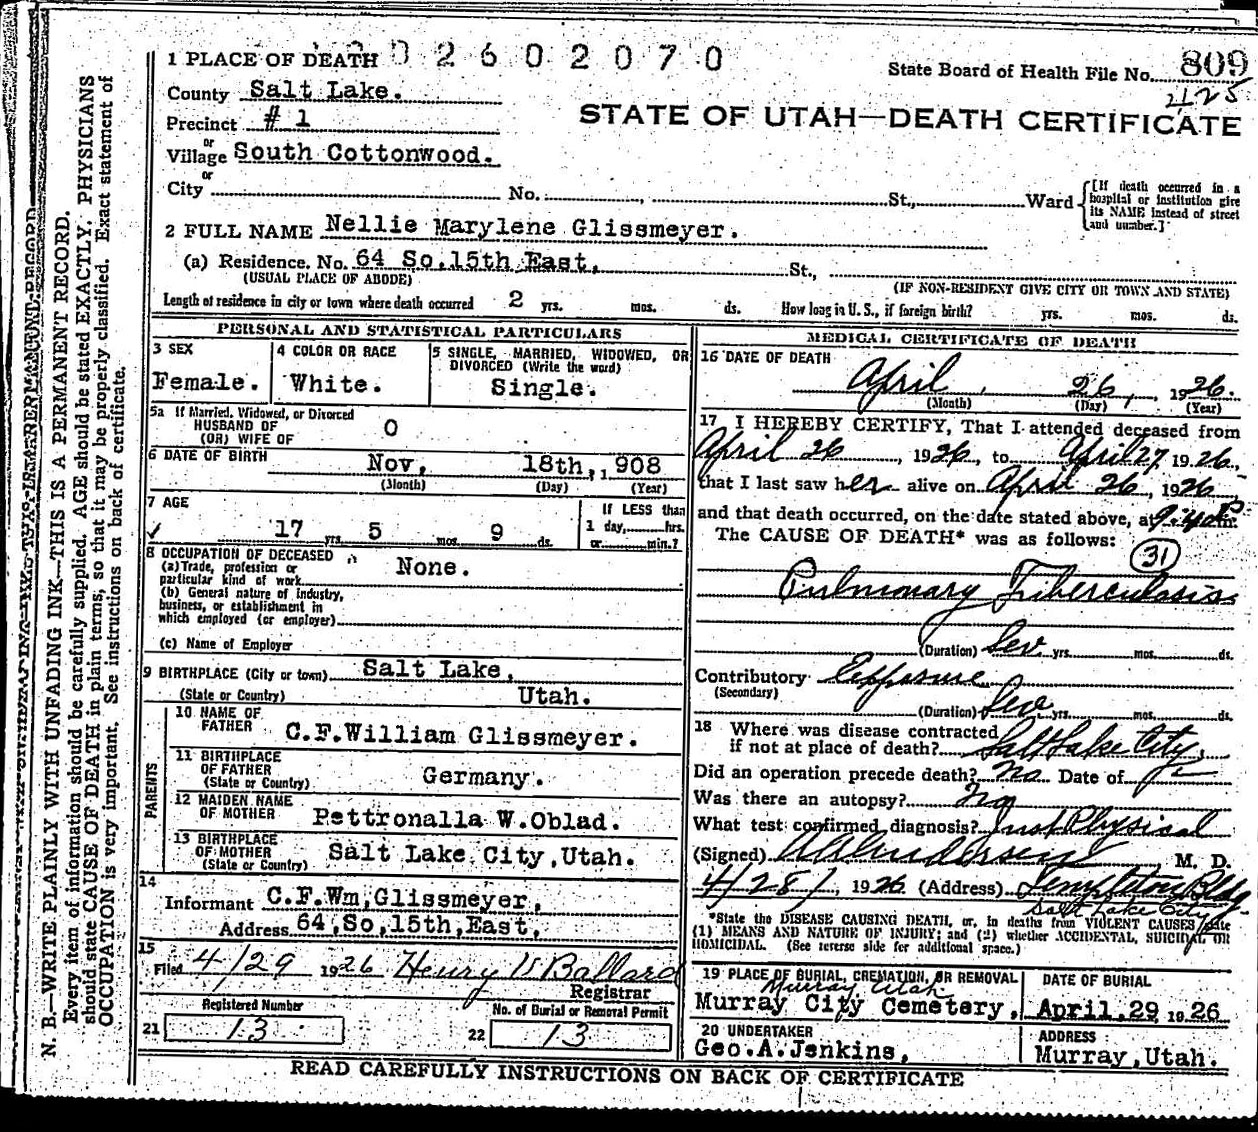 1 PLACE OF DEATH 2602070
State Board of Health File No. 809
2125
County Salt Lake.
STATE OF UTAH—DEATH CERTIFICATE
Precinct # 1
or
Village South Cottonwood.
or
City No. St., Ward [If death occurred in a hospital or institution give its NAME instead of street and number.]
2 FULL NAME Nellie Marylene Glissmeyer.
(a) Residence. No. 64 So.15th East, St.,
(USUAL PLACE OF ABODE) (IF NON-RESIDENT GIVE CITY OR TOWN AND STATE)
Length of residence in city or town where death occurred 2 yrs. mos. ds. How long in U. S., if foreign birth? yrs. mos. ds.
PERSONAL AND STATISTICAL PARTICULARS
3 SEX
Female.
4 COLOR OR RACE
White.
5 SINGLE, MARRIED, WIDOWED, OR
DIVORCED (Write the word)
Single.
5a If Married, Widowed, or Divorced
HUSBAND OF
(OR) WIFE OF 0
6 DATE OF BIRTH
Nov, 18th, 1908
(Month) (Day) (Year)
7 AGE
17 yrs. 5 mos. 9 ds.
If LESS than
1 day, hrs.
or min.?
8 OCCUPATION OF DECEASED
(a) Trade, profession or
particular kind of work None.
(b) General nature of industry,
business, or establishment in
which employed (or employer)
(c) Name of Employer
9 BIRTHPLACE (City or town) Salt Lake,
(State or Country) Utah.
PARENTS
10 NAME OF
FATHER C.F.William Glissmeyer.
11 BIRTHPLACE
OF FATHER
(State or Country) Germany.
12 MAIDEN NAME
OF MOTHER Pettronalla W.Oblad.
13 BIRTHPLACE
OF MOTHER
(State or Country) Salt Lake City, Utah.
14
Informant C.F.Wm,Glissmeyer,
Address 64,So,15th,East,
15
Filed 4/29 1926 Henry W Ballard
Registrar
Registered Number
21 13
No. of Burial or Removal Permit
22 13
MEDICAL CERTIFICATE OF DEATH
16 DATE OF DEATH
April 26, 1926.
(Month) (Day) (Year)
17 I HEREBY CERTIFY, That I attended deceased from
April 26, 1926, to April 27 1926,
that I last saw her alive on April 26, 1926
and that death occurred, on the date stated above, at 9:40 P m.
The CAUSE OF DEATH* was as follows:
31
Pulmonary Tuberculosis
(Duration) Sev yrs. mos. ds.
Contributory Exposure
(Secondary)
(Duration) Sev yrs. mos. ds.
18 Where was disease contracted
if not at place of death? Salt Lake City,
Did an operation precede death? no Date of
Was there an autopsy? No
What test confirmed diagnosis? Just Physical
(Signed) M. D.
4/28/, 1926 (Address) Templeton Bldg
Salt Lake City
*State the DISEASE CAUSING DEATH, or, in deaths from VIOLENT CAUSES state
(1) MEANS AND NATURE OF INJURY; and (2) whether ACCIDENTAL, SUICIDAL OR
HOMICIDAL. (See reverse side for additional space.)
19 PLACE OF BURIAL, CREMATION, OR REMOVAL
Murray Utah
Murray City Cemetery,
DATE OF BURIAL
April,29 1926
20 UNDERTAKER
Geo.A.Jenkins,
ADDRESS
Murray,Utah.
READ CAREFULLY INSTRUCTIONS ON BACK OF CERTIFICATE
N. B.—WRITE PLAINLY WITH UNFADING INK—THIS IS A PERMANENT RECORD.
Every item of information should be carefully supplied. AGE should be stated EXACTLY. PHYSICIANS
should state CAUSE OF DEATH in plain terms, so that it may be properly classified. Exact statement of
OCCUPATION is very important. See instructions on back of certificate.